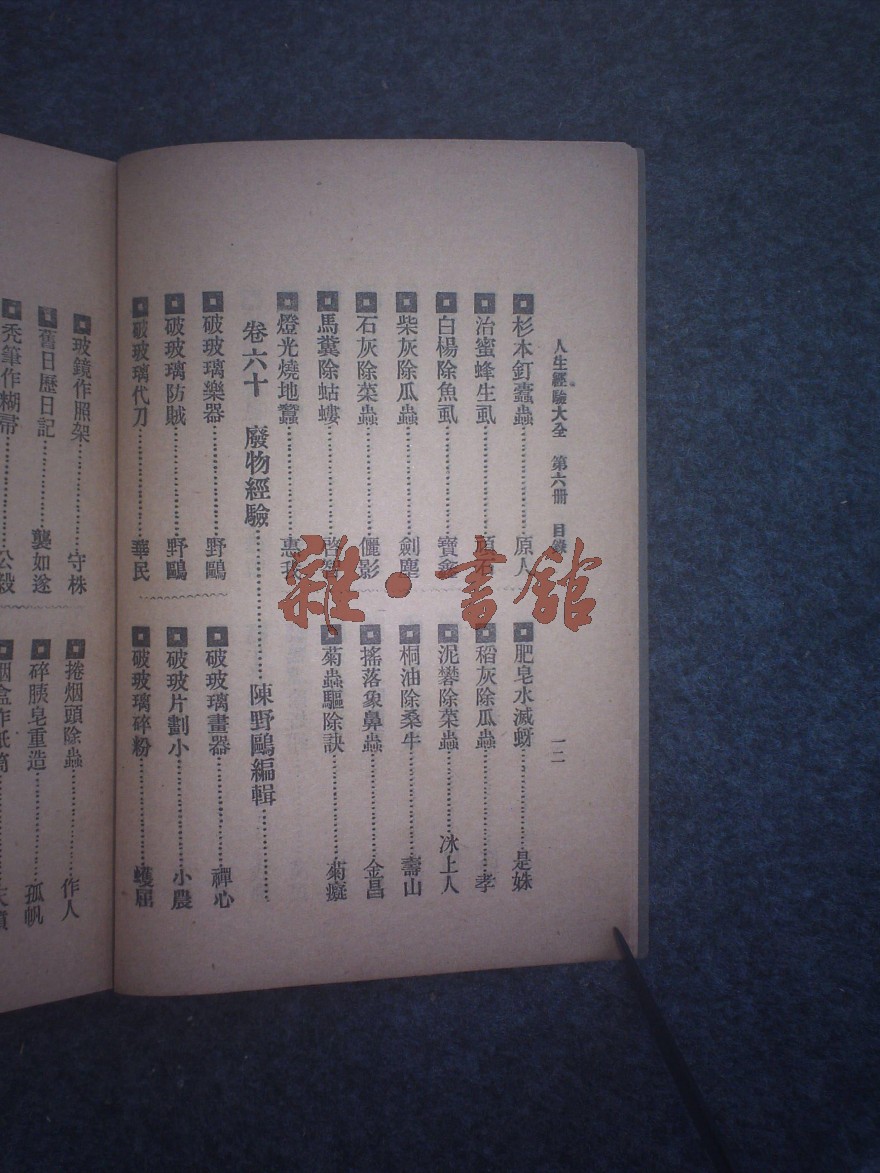 人生經驗大全 第六冊 目錄 一二
杉本釘蠹蟲 原人
肥皂水滅蚜 是姝
治蜜蜂生虱 頑石
稻灰除瓜蟲 孝
白楊除魚虱 寶鑫
泥礬除菜蟲 冰上人
柴灰除瓜蟲 劍塵
桐油除桑牛 壽山
石灰除菜蟲 儷影
搖落象鼻蟲 金昌
馬糞除蛄螻 啓智
菊蟲驅除訣 菊癡
燈光燒地蠶 惠我
卷六十 廢物經驗 陳野鷗編輯
破玻璃樂器 野鷗
破玻璃畫器 禪心
破玻璃防賊 野鷗
破玻片劃小 小農
破玻璃代刀 華民
破玻璃碎粉 蠖屈
玻鏡作照架 守株
捲烟頭除蟲 作人
舊日歷日記 襲如遂
碎胰皂重造 孤帆
禿筆作糊帚 公毅
烟盒作紙筒
雜·書館